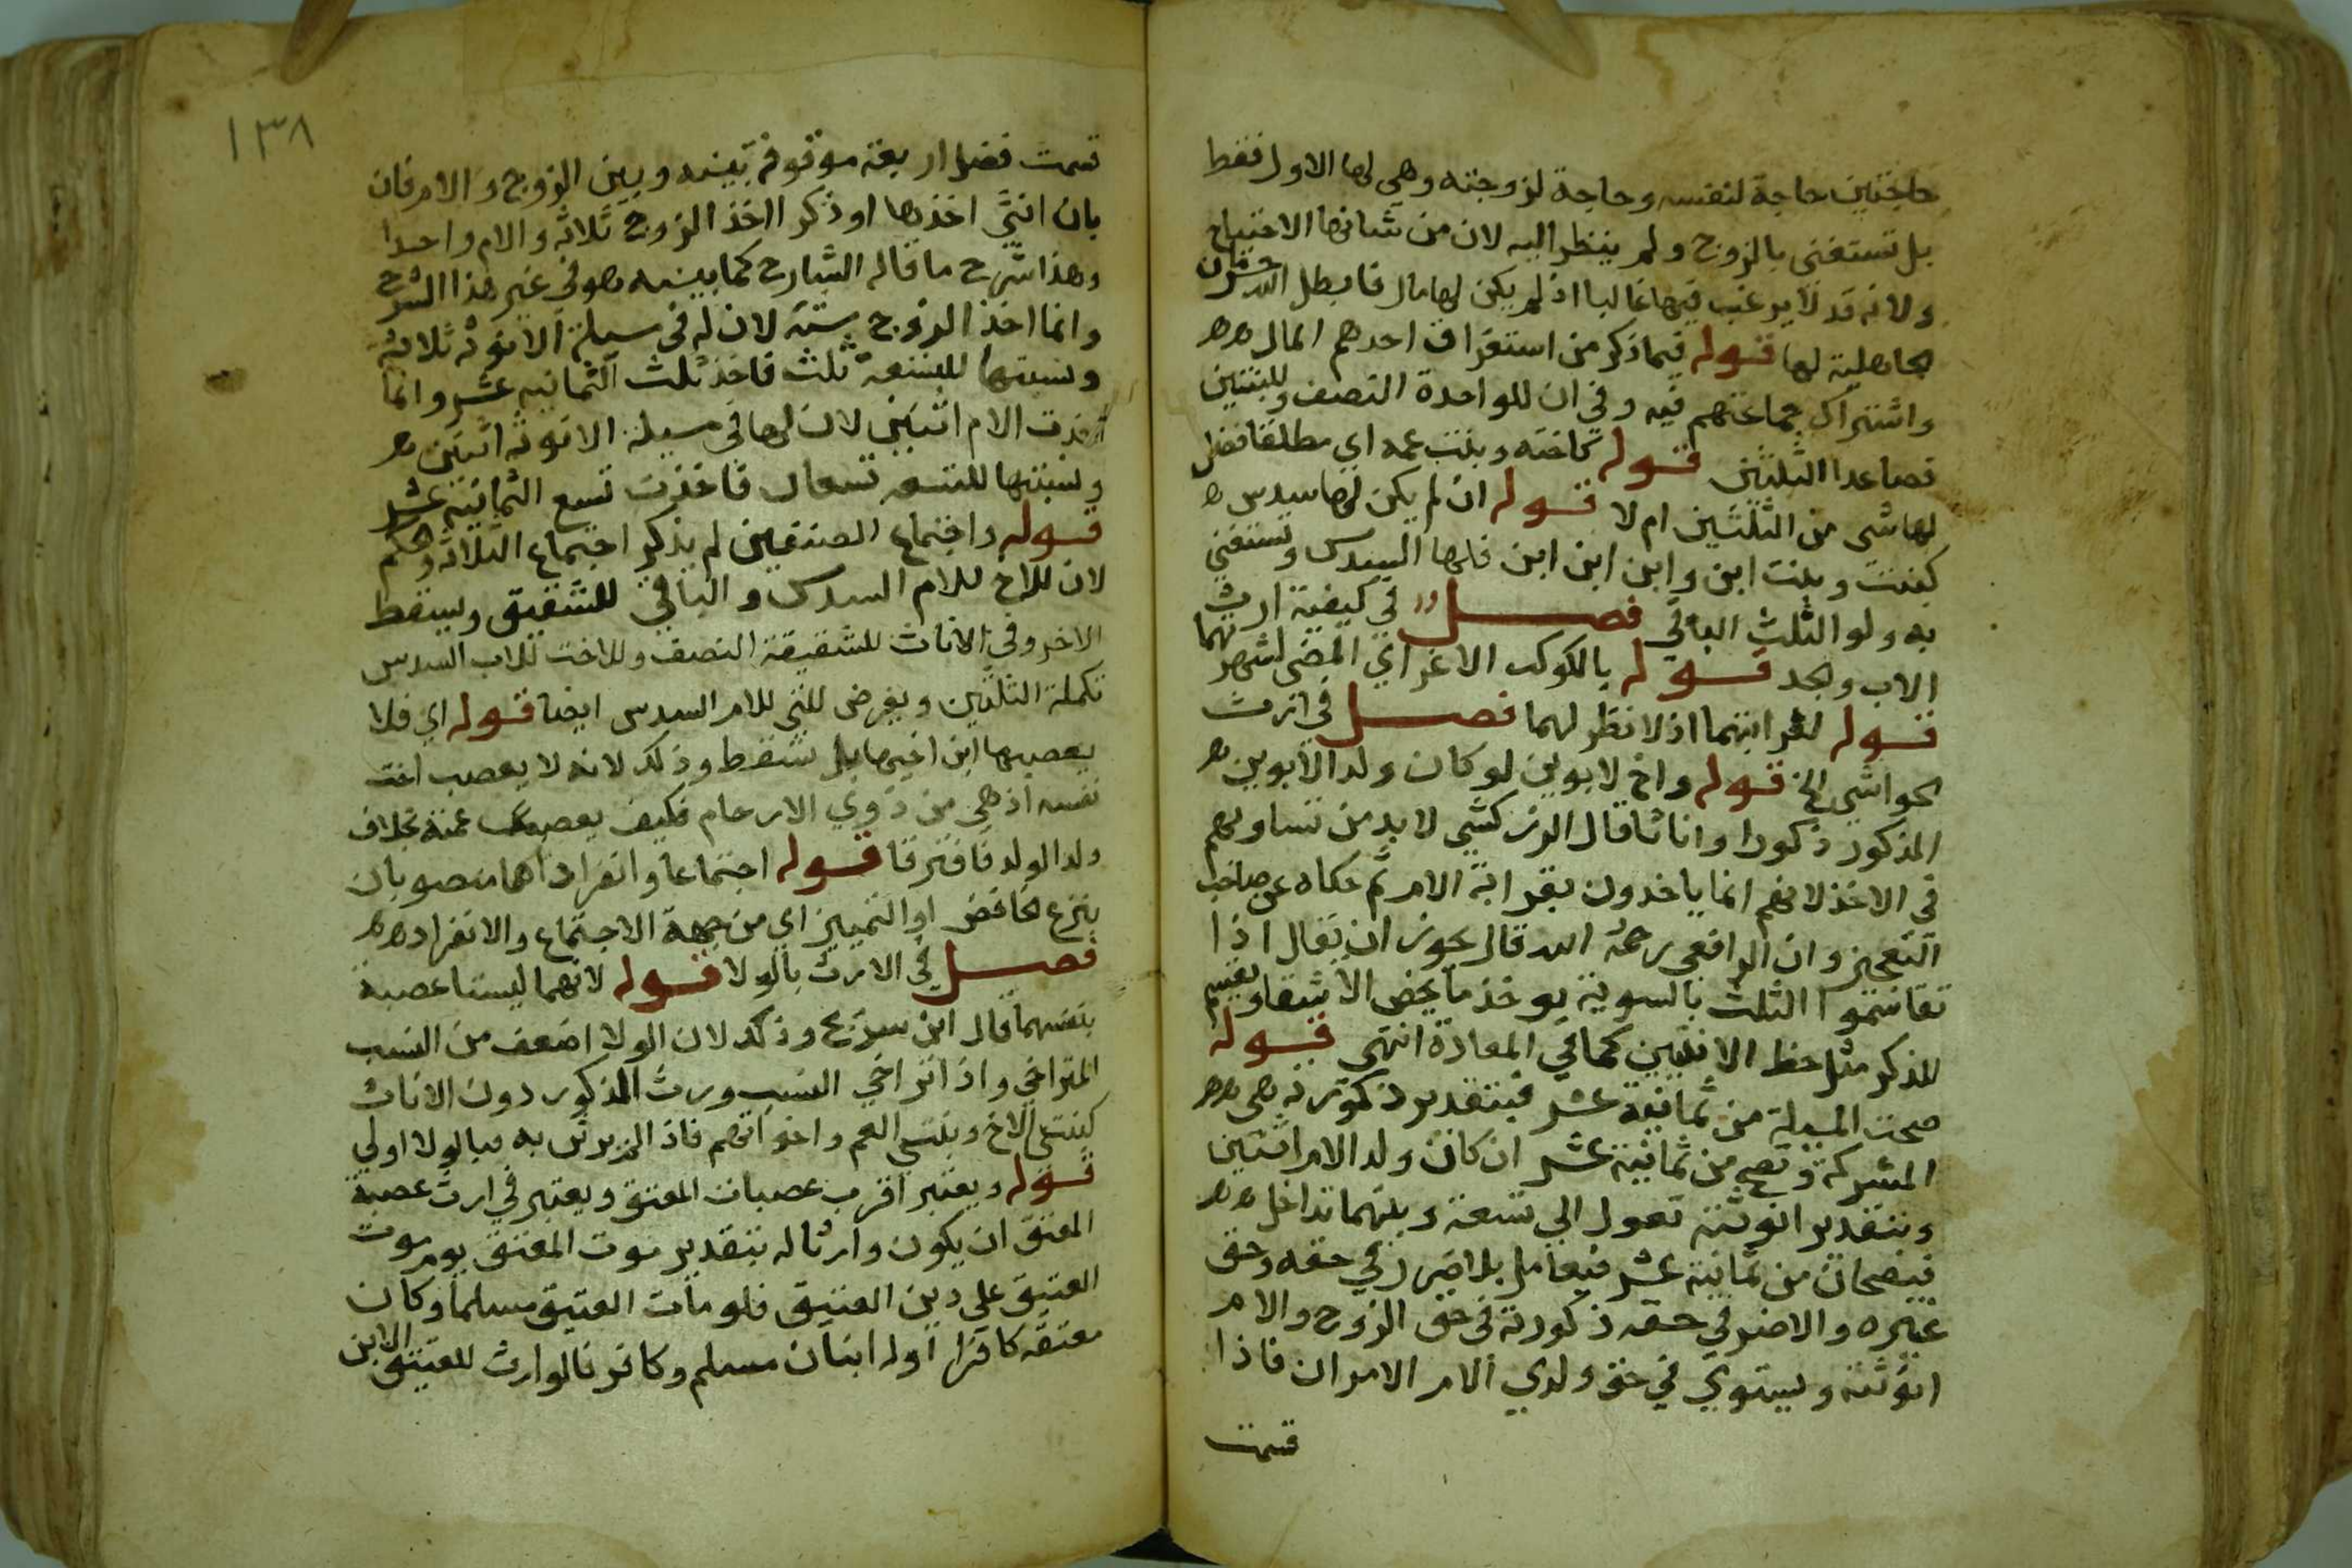 حاجتين حاجة لنفسه وحاجة لزوجته وهي لها الاول فقط
بل تستغني بالزوج ولم ينظر اليه لان من شانها الاحتياج
ولانه قد لا يرغب فيها غالبا اذا لم يكن لها مال فابطل الله حرمان
الجاهلية لها قوله فيما ذكر من استغراق احدهم المال
واشتراك جماعتهم فيه وفي ان للواحدة النصف وللبنتين
فصاعدا الثلثين قوله كاخته وبنت عمه اي مطلقا فضل
لها شي من الثلثين ام لا قوله ان لم يكن لها سدس
كبنت وبنت ابن وابن ابن ابن فلها السدس وتستغني
به وله الثلث الباقي فصل في كيفية ارث
الاب والجد قوله بالكوكب الاغر اي المضي لشهرتهما
قوله لغرابتهما اذ لا نظر لهما فصل في ارث
الحواشي الخ قوله واخ لابوين لو كان ولد الابوين
المذكور ذكورا واناثا قال الزركشي لا بد من تساويهم
في الاخذ لانهم انما ياخذون بقرابة الام ثم حكاه عن صاحب
التعجيز وان الرافعي رحمه الله قال يجوز ان يقال اذا
تقاسموا الثلث بالسوية يوخذ ما يخص الاشقا ويقسم
للذكر مثل حظ الانثيين كما في المعادة انتهى قوله
صحت المسيلة من ثمانية عشر فبتقدير ذكورته هي
المشركة وتصح من ثمانية عشر ان كان ولد الام اثنين
وبتقدير انوثته تعول الى تسعة وبينهما تداخل
فيصحان من ثمانية عشر فيعامل بالاضر في حقه وحق
غيره والاضر في حقه ذكورته في حق الزوج والام
انوثته ويستوي في حق ولدي الام الامران فاذا
قسمت
١٣٨
قسمت فضل اربعة موقوفة بينه وبين الزوج والام فان
بان انثى اخذها او ذكرا اخذ الزوج ثلاثة والام واحدا
وهذا شرح ما قاله الشارح كما بينه هو في غير هذا الشرح
وانما اخذ الزوج ستة لان له في مسيلة الانوثة ثلاثة
ونسبتها للتسعة ثلث فاخذ ثلث الثمانيه عشر وانما
اخذت الام اثنين لان لها في مسيلة الانوثة اثنين
ونسبتها للتسعه تسعان فاخذت تسع الثمانية عشر
قوله واجتماع الصنفين لم يذكر اجتماع الثلاثة وحكم
لان للاخ للام السدس والباقي للشقيق ويسقط
الاخر وفي الاناث للشقيقة النصف وللاخت للاب السدس
تكملة الثلثين ويفرض للتي للام السدس ايضا قوله اي فلا
يعصبها ابن اخيها بل تسقط وذلك لانه لا يعصب اخت
نفسه اذ هي من ذوي الارحام فكيف يعصب عمته بخلاف
ولد الولد فافترقا قوله اجتماعا وانفرادا هما منصوبان
بنزع الخافض او التمييز اي من جهة الاجتماع والانفراد
فصل في الارث بالولا قوله لانهما ليستا عصبة
بنفسهما قال ابن سريج وذلك لان الولا اضعف من النسب
المتراخي واذا تراخي النسب ورث الذكور دون الاناث
كبنتي الاخ وبنتي العم واخواتهم فاذا لم يرثن به فبالولا اولي
قوله ويعتبر اقرب عصبات المعتق ويعتبر في ارث عصبة
المعتق ان يكون وارثا له بتقدير موت المعتق يوم موت
العتيق على دين العتيق فلو مات العتيق مسلما وكان
معتقه كافرا وله ابنان مسلم وكافر فالوارث للعتيق الابن